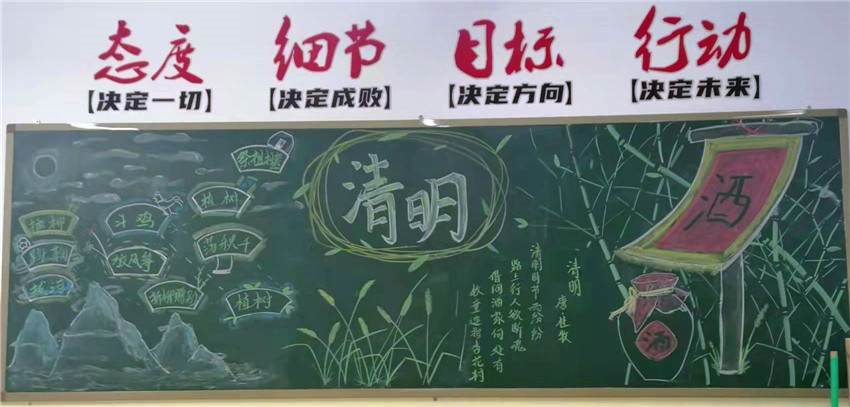 态度 细节 目标 行动
【决定一切】 【决定成败】 【决定方向】 【决定未来】
植树
斗鸡
荡秋千
放风筝
植树
清明
清明
唐·杜牧
清明时节雨纷纷
路上行人欲断魂
借问酒家何处有
牧童遥指杏花村
酒
酒